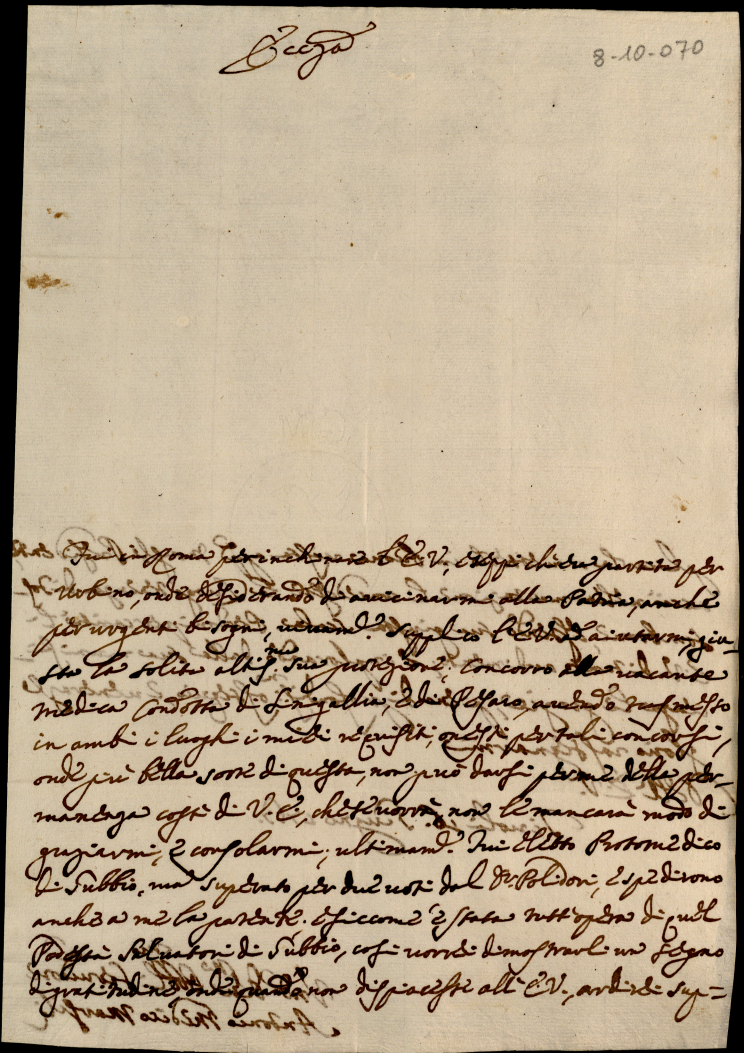 Ecc.za
8-10-070
Fui in Roma per inchinare l'E. V., e seppi ch'era partita per
Urbino, onde desiderando di avvicinarmi alla Patria, anche
per urgenti bisogni, vivam.e supplico l'E. V. ad aiutarmi, giu-
sta la solita altis.ma sua protezione. Concorro alla vacante
medica Condotta di Sinigallia, e di Pesaro, avendo trasmesso
in ambi i luoghi i miei requisiti, onesti per tali concorsi,
onde più bella sorte di questa, non può darsi per me della per-
manenza costì di V. E., che se vorrà, non le mancarà modo di
graziarmi, e consolarmi; ultimam.e fui eletto Protomedico
di Gubbio, ma superato per due voti dal Dr. Polidori, e spedirono
anche a me la patente. E siccome è stata tutt'opera di quel
Podestà Salvatori di Gubbio, così vorrei dimostrarli un segno
di gratitudine, onde quando non dispiacesse all'E. V., ardirei sup=